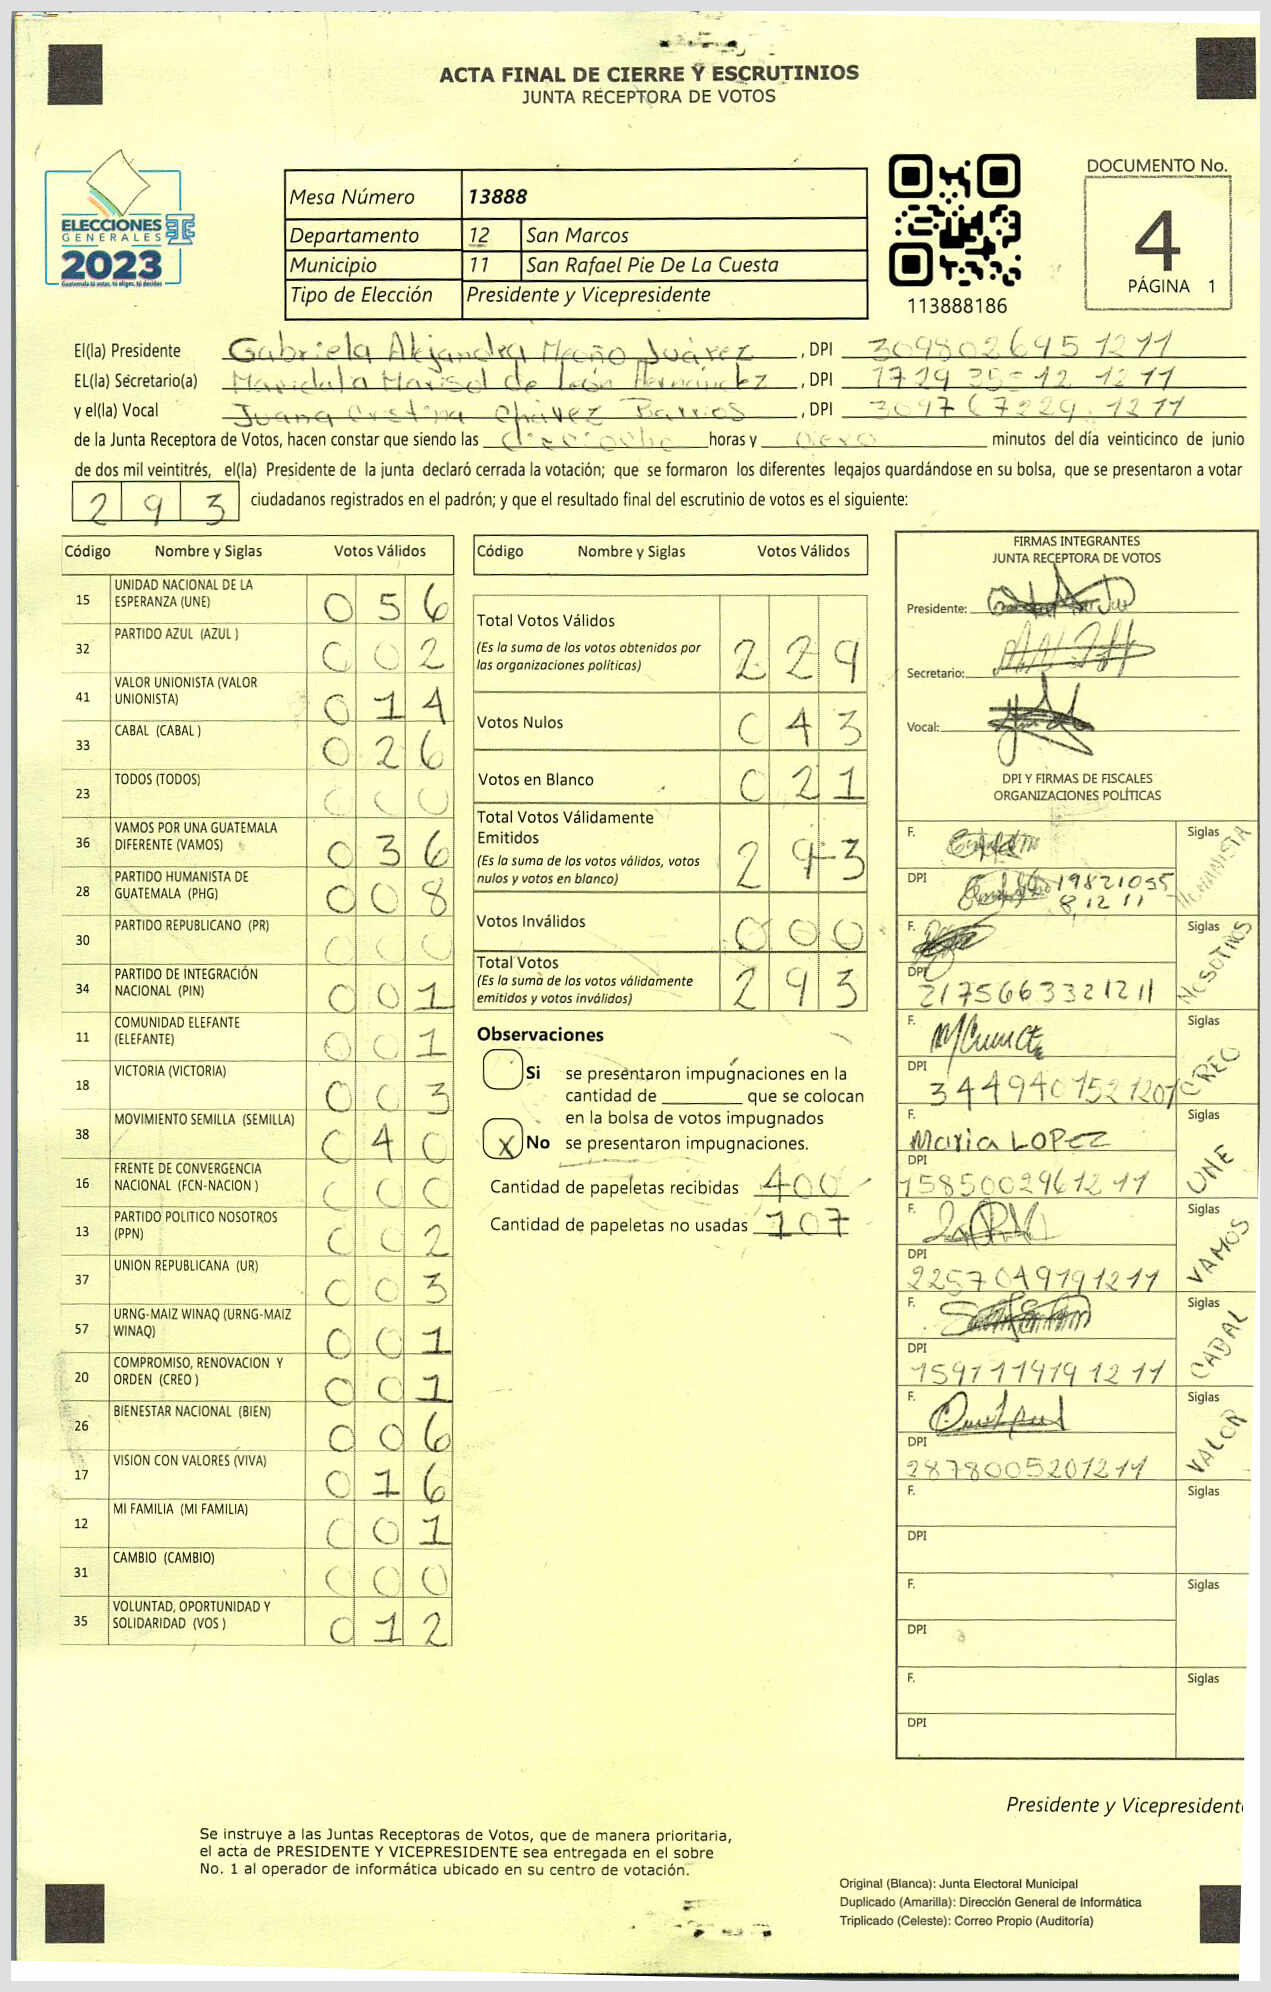 ACTA FINAL DE CIERRE Y ESCRUTINIOS
JUNTA RECEPTORA DE VOTOS
ELECCIONES
GENERALES
2023
Guatemala tú votas, tú eliges, tú decides
Mesa Número 13888
Departamento 12 San Marcos
Municipio 11 San Rafael Pie De La Cuesta
Tipo de Elección Presidente y Vicepresidente
113888186
DOCUMENTO No.
4
PÁGINA 1
El(la) Presidente Gabriela Alejandra Juárez , DPI 3098026951211
EL(la) Secretario(a) Marisol de León Hernández , DPI
y el(la) Vocal Juana Cristina Chávez Barrios , DPI
de la Junta Receptora de Votos, hacen constar que siendo las dieciocho horas y cero minutos del día veinticinco de junio
de dos mil veintitrés, el(la) Presidente de la junta declaró cerrada la votación; que se formaron los diferentes legajos quardándose en su bolsa, que se presentaron a votar
293 ciudadanos registrados en el padrón; y que el resultado final del escrutinio de votos es el siguiente:
Código Nombre y Siglas Votos Válidos
15 UNIDAD NACIONAL DE LA ESPERANZA (UNE) 056
32 PARTIDO AZUL (AZUL ) 002
41 VALOR UNIONISTA (VALOR UNIONISTA) 014
33 CABAL (CABAL ) 026
23 TODOS (TODOS) 000
36 VAMOS POR UNA GUATEMALA DIFERENTE (VAMOS) 036
28 PARTIDO HUMANISTA DE GUATEMALA (PHG) 008
30 PARTIDO REPUBLICANO (PR) 000
34 PARTIDO DE INTEGRACIÓN NACIONAL (PIN) 001
11 COMUNIDAD ELEFANTE (ELEFANTE) 001
18 VICTORIA (VICTORIA) 003
38 MOVIMIENTO SEMILLA (SEMILLA) 040
16 FRENTE DE CONVERGENCIA NACIONAL (FCN-NACION ) 000
13 PARTIDO POLITICO NOSOTROS (PPN) 002
37 UNION REPUBLICANA (UR) 003
57 URNG-MAIZ WINAQ (URNG-MAIZ WINAQ) 001
20 COMPROMISO, RENOVACION Y ORDEN (CREO ) 001
26 BIENESTAR NACIONAL (BIEN) 006
17 VISION CON VALORES (VIVA) 016
12 MI FAMILIA (MI FAMILIA) 001
31 CAMBIO (CAMBIO) 000
35 VOLUNTAD, OPORTUNIDAD Y SOLIDARIDAD (VOS ) 012
Código Nombre y Siglas Votos Válidos
Total Votos Válidos
(Es la suma de los votos obtenidos por
las organizaciones políticas) 229
Votos Nulos 043
Votos en Blanco 021
Total Votos Válidamente
Emitidos
(Es la suma de los votos válidos, votos
nulos y votos en blanco) 293
Votos Inválidos 000
Total Votos
(Es la suma de los votos válidamente
emitidos y votos inválidos) 293
Observaciones
Si se presentaron impugnaciones en la
cantidad de ________ que se colocan
en la bolsa de votos impugnados
X No se presentaron impugnaciones.
Cantidad de papeletas recibidas 400
Cantidad de papeletas no usadas 107
FIRMAS INTEGRANTES
JUNTA RECEPTORA DE VOTOS
Presidente:
Secretario:
Vocal:
DPI Y FIRMAS DE FISCALES
ORGANIZACIONES POLÍTICAS
F. Siglas HUMANISTA
DPI 19821055
8,1211
F. Siglas NOSOTROS
DPI 2175663321211
F. Siglas CREO
DPI 3449401521201
F. Maria LOPEZ Siglas UNE
DPI 1585002961211
F. Siglas VAMOS
DPI 2257049191211
F. Siglas CABAL
DPI 1591119191211
F. Siglas VALOR
DPI 2878005201211
F. Siglas
DPI
F. Siglas
DPI
F. Siglas
DPI
Presidente y Vicepresident
Se instruye a las Juntas Receptoras de Votos, que de manera prioritaria,
el acta de PRESIDENTE Y VICEPRESIDENTE sea entregada en el sobre
No. 1 al operador de informática ubicado en su centro de votación.
Original (Blanca): Junta Electoral Municipal
Duplicado (Amarilla): Dirección General de Informática
Triplicado (Celeste): Correo Propio (Auditoría)